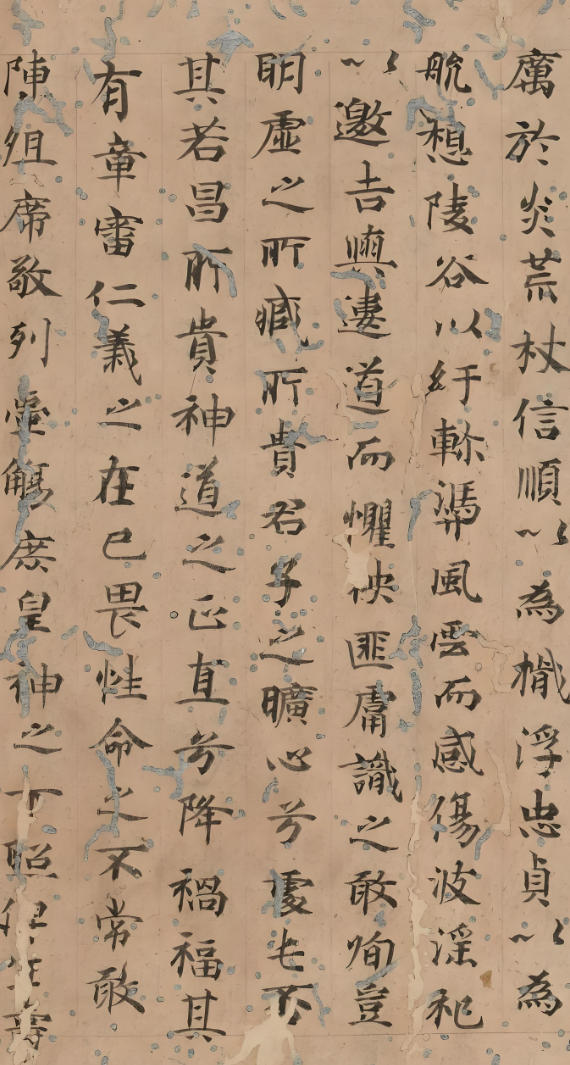 厲於炎荒杖信順以為檝浮忠貞以為
航想陵谷以紆軫風雲而感傷波淫祀
以邀吉輿道而懼殃匪庸識之敢徇豈
明虛之所臧所貴君子之曠心兮處屯不
其若昌所貴神道之正直兮降禍福其
有章審仁義之在己畏性命之不常敢
陳俎席敬列觴庶皇神之下照俾生壽